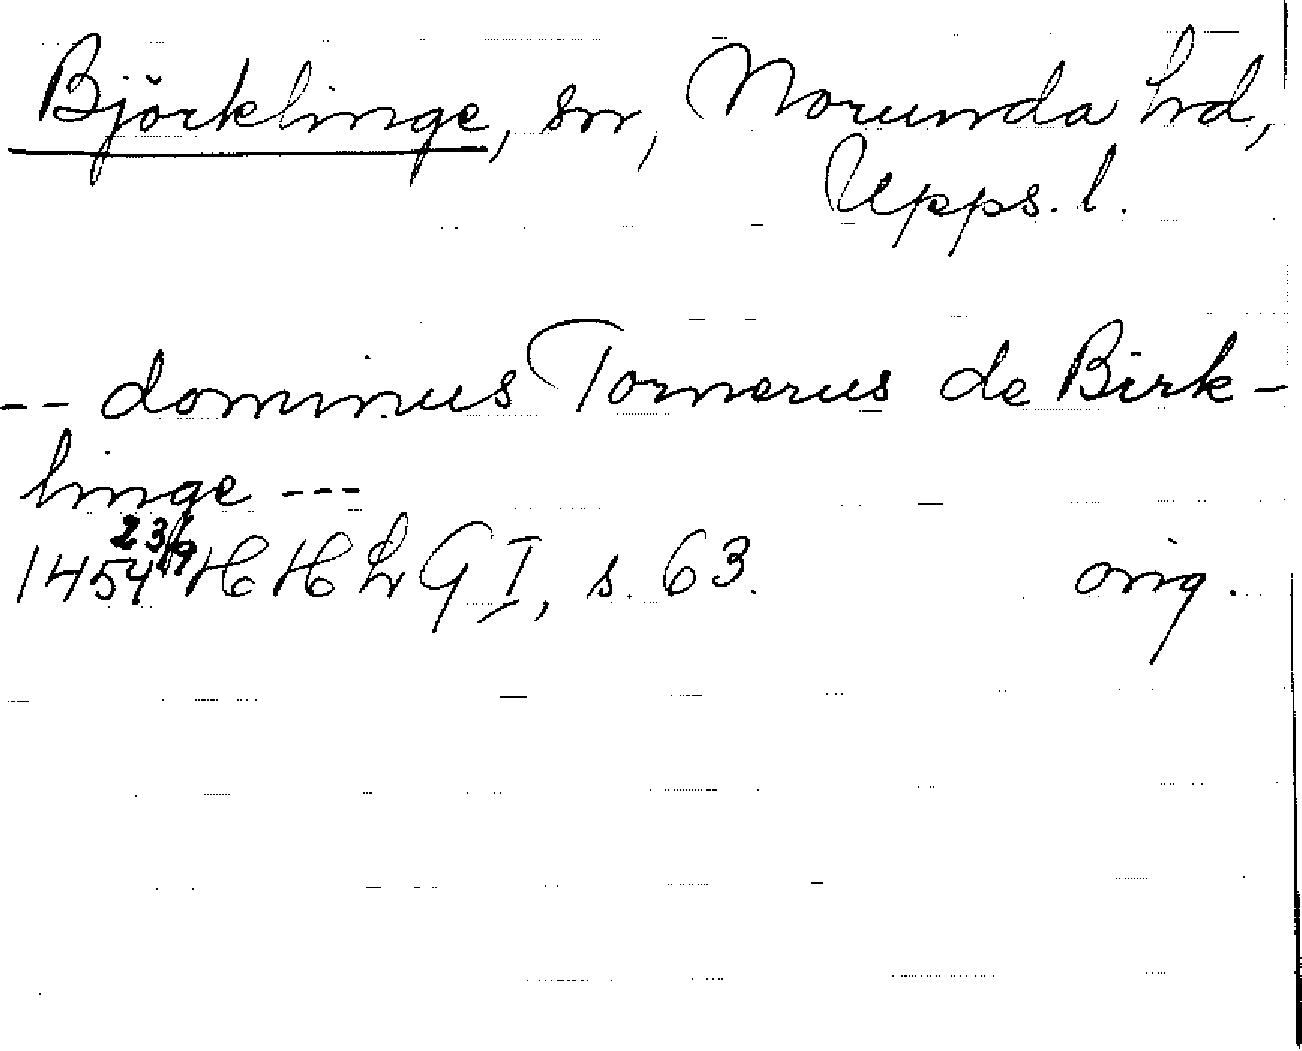 Björklinge, sn, Norunda hd,
Upps. l.
-- dominus Tornerus de Birk-
linge ---
1454 23/9 HHLG I, s. 63. orig.